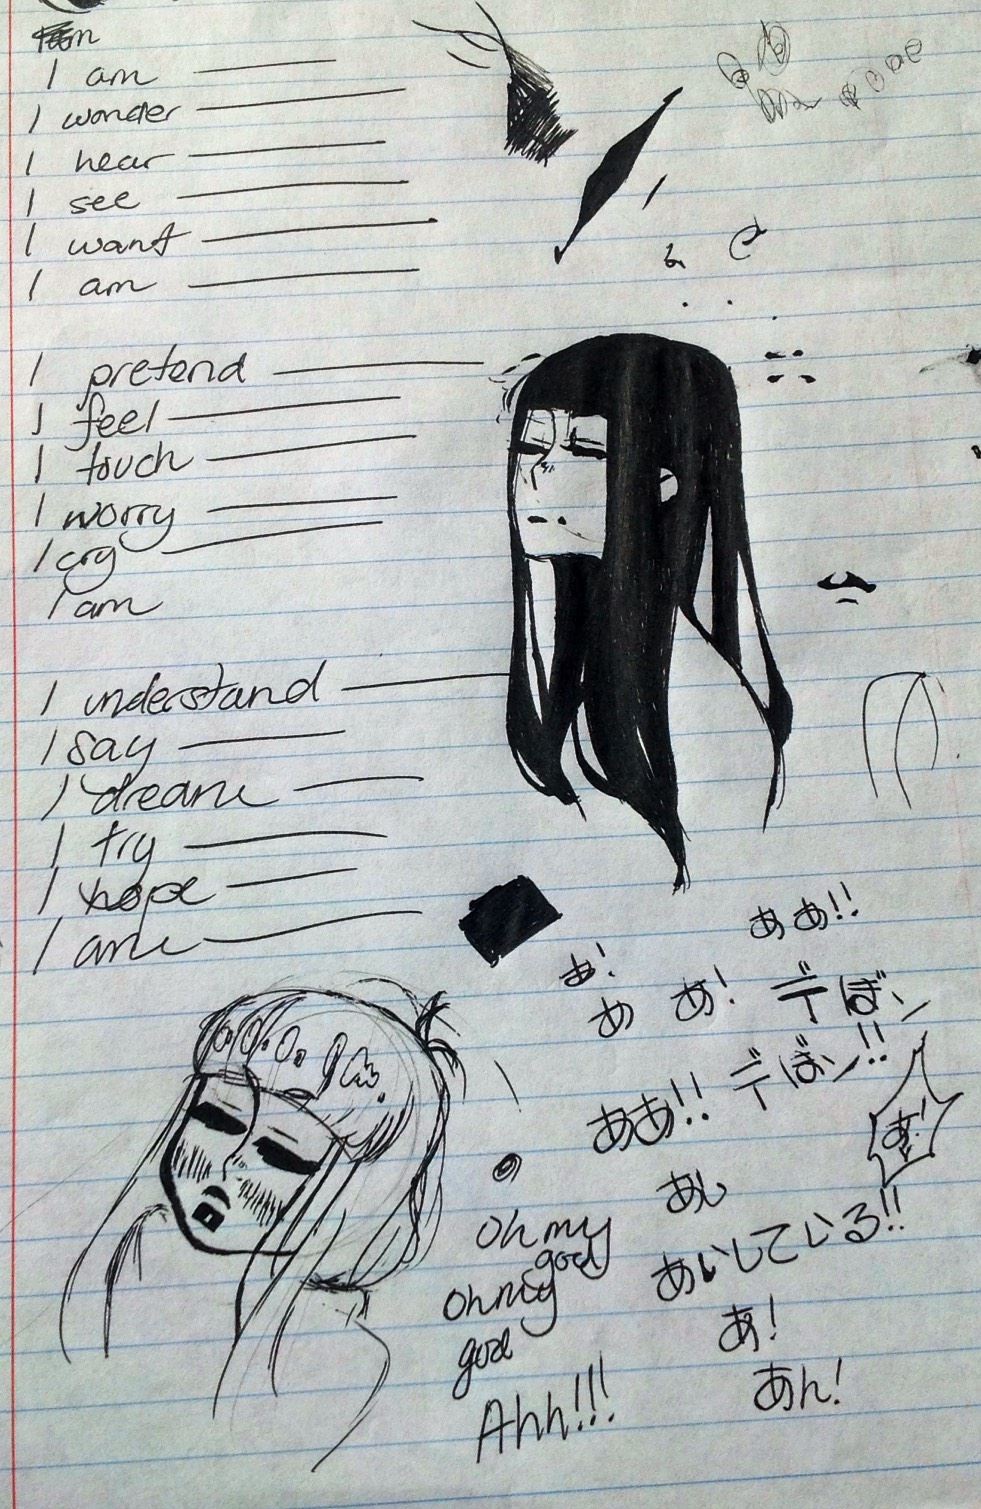 I am
I wonder
I hear
I see
I want
I am
I pretend
I feel
I touch
I worry
I cry
I am
I understand
I say
I dream
I try
I hope
I am
ああ!!
あ!
あ あ! デぼン
ああ!! デぼン!!
あ!
あし
あいしている!!
あ!
あん!
oh my
god
oh my
god
Ahh!!!